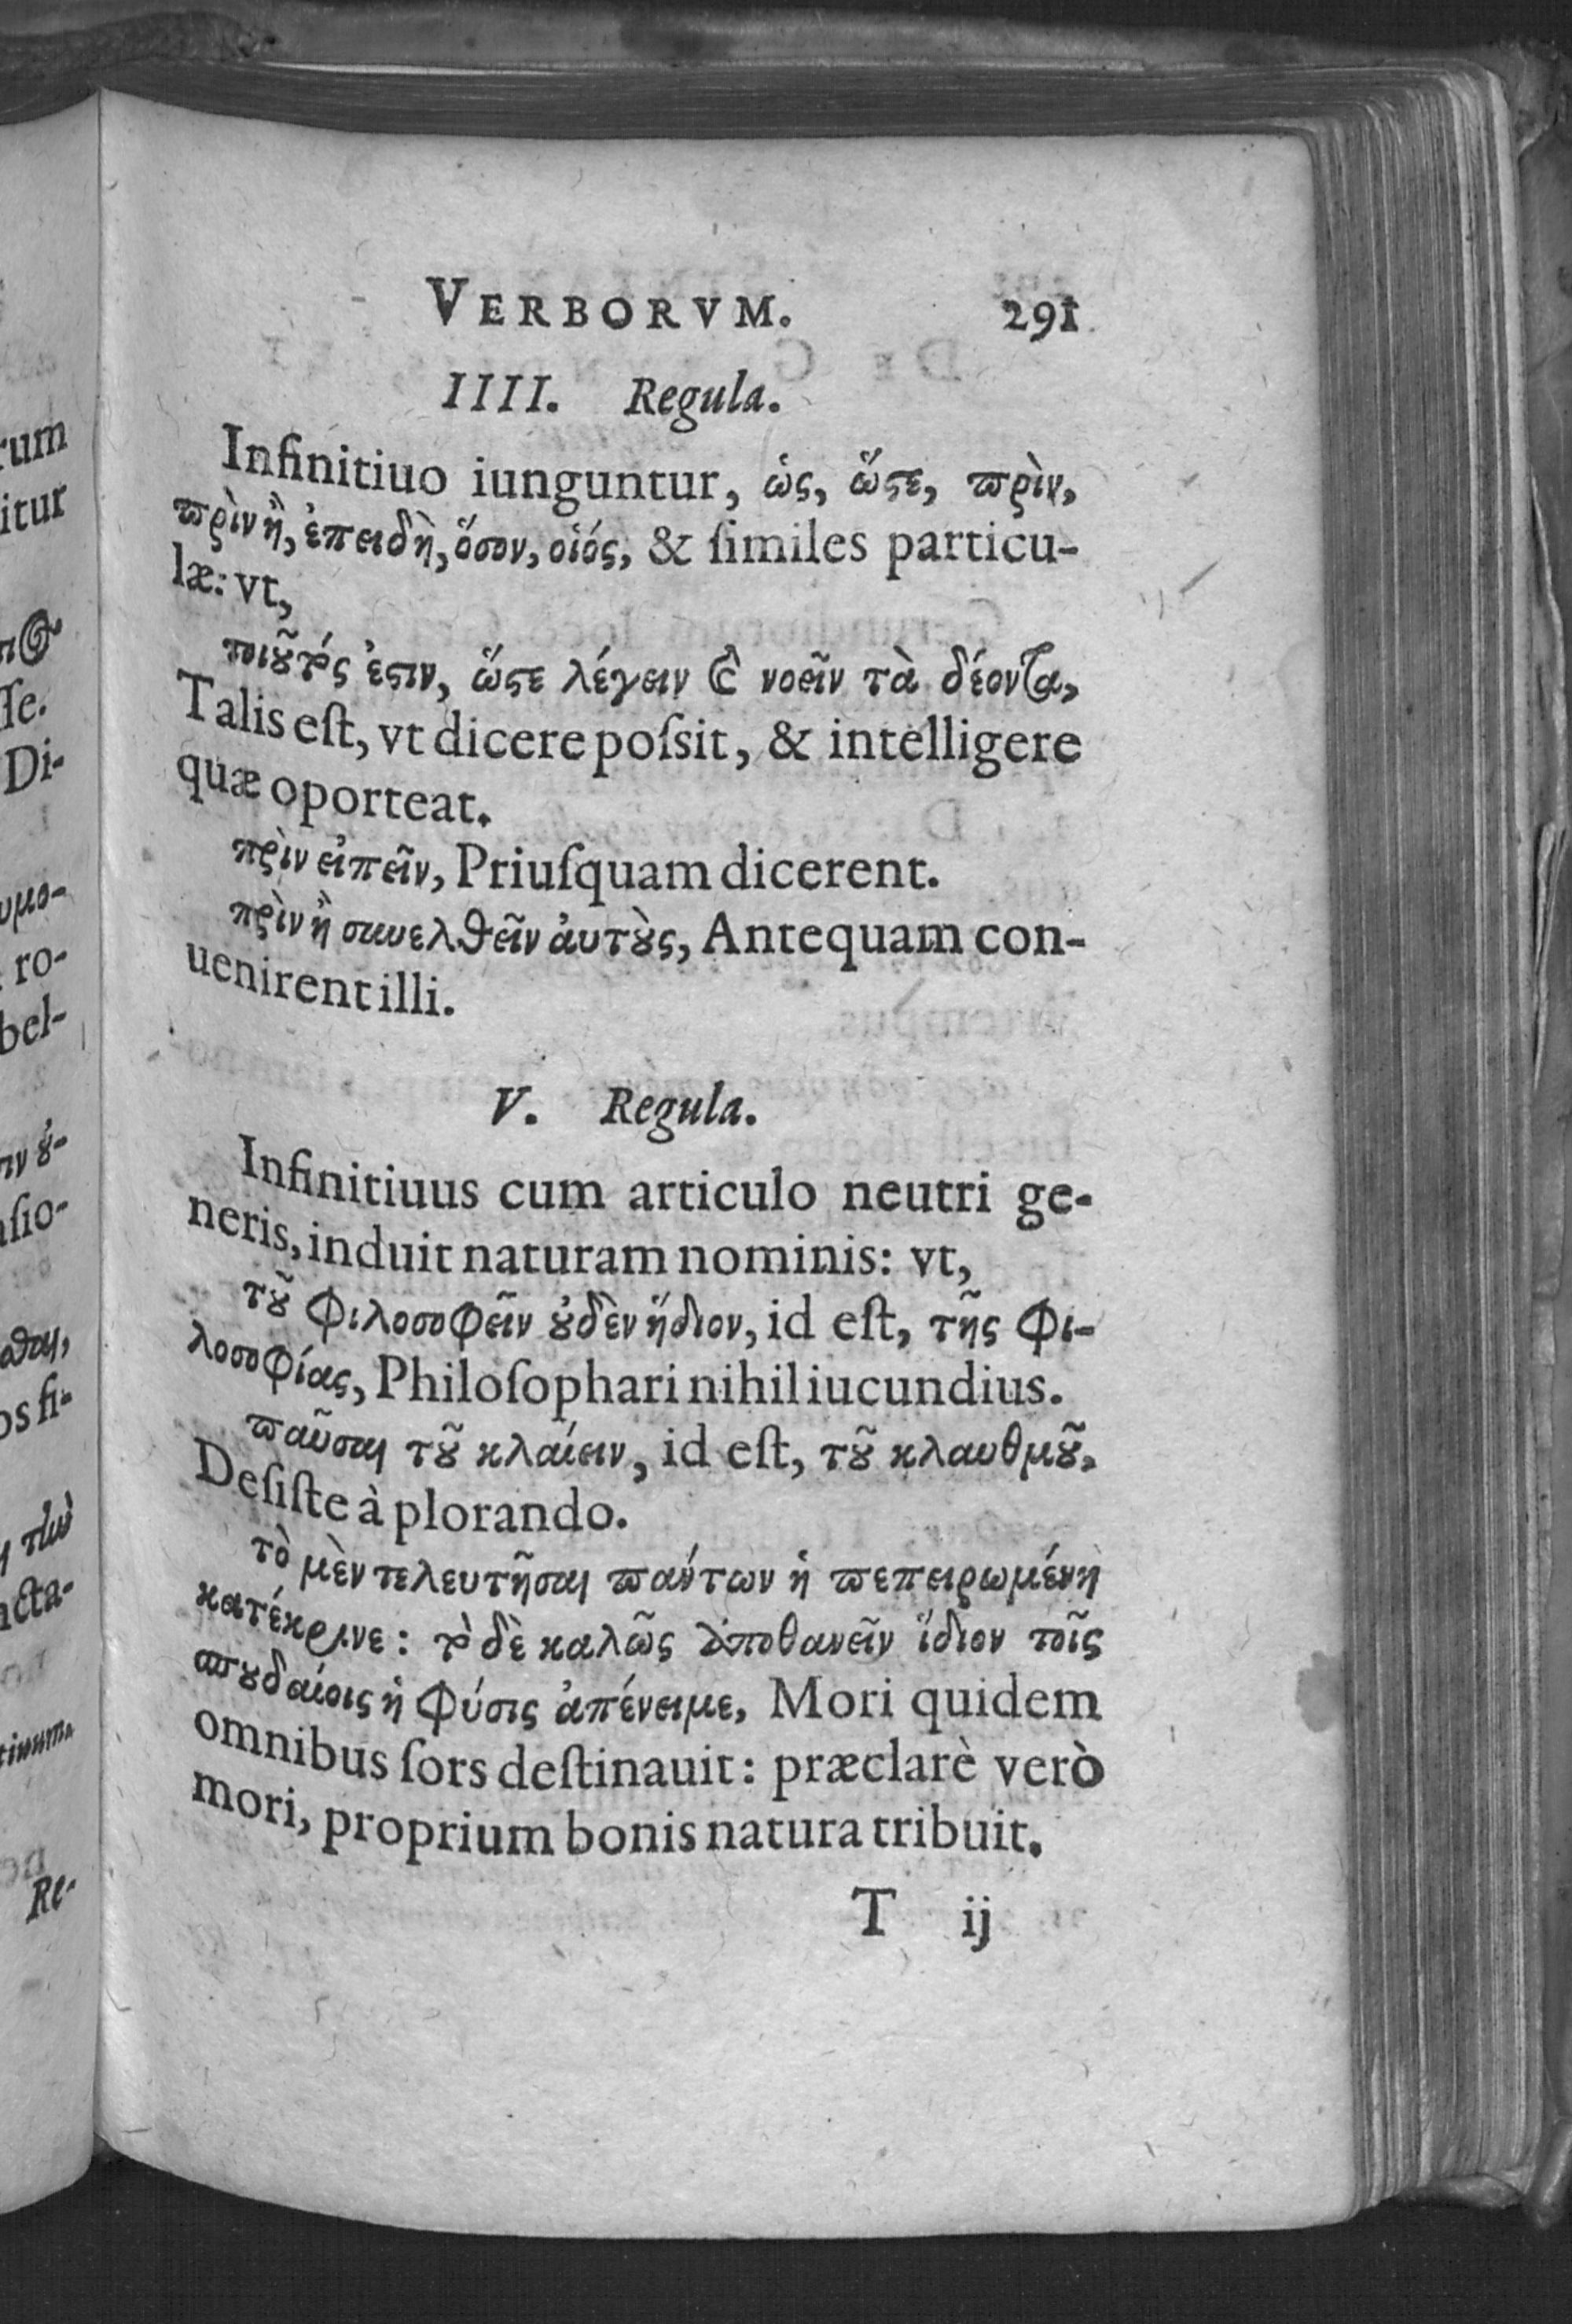 VERBORVM. 291
IIII. Regula.
Infinitiuo iunguntur, ὡς, ὥστε, πρὶν,
πρὶν ἢ, ἐπειδὴ, ὅσον, οἱός, & ſimiles particu-
læ: vt,
τοιοῦτός ἐστιν, ὥστε λέγειν καὶ νοεῖν τὰ δέοντα,
Talis eſt, vt dicere poſsit, & intelligere
quæ oporteat.
πρὶν εἰπεῖν, Priuſquam dicerent.
πρὶν ἢ συνελθεῖν ἀυτοὺς, Antequam con-
uenirent illi.
V. Regula.
Infinitiuus cum articulo neutri ge-
neris, induit naturam nominis: vt,
τοῦ φιλοσοφεῖν οὐδὲν ἥδιον, id eſt, τῆς φι-
λοσοφίας, Philoſophari nihil iucundius.
παῦσαι τοῦ κλαίειν, id eſt, τοῦ κλαυθμοῦ,
Deſiſte à plorando.
τὸ μὲν τελευτῆσαι πάντων ἡ πεπειρωμένη
κατέκρινε: τὸ δὲ καλῶς ἀποθανεῖν ἴδιον τοῖς
σπουδαίοις ἡ φύσις ἀπένειμε, Mori quidem
omnibus ſors deſtinauit: præclarè verò
mori, proprium bonis natura tribuit.
T ij